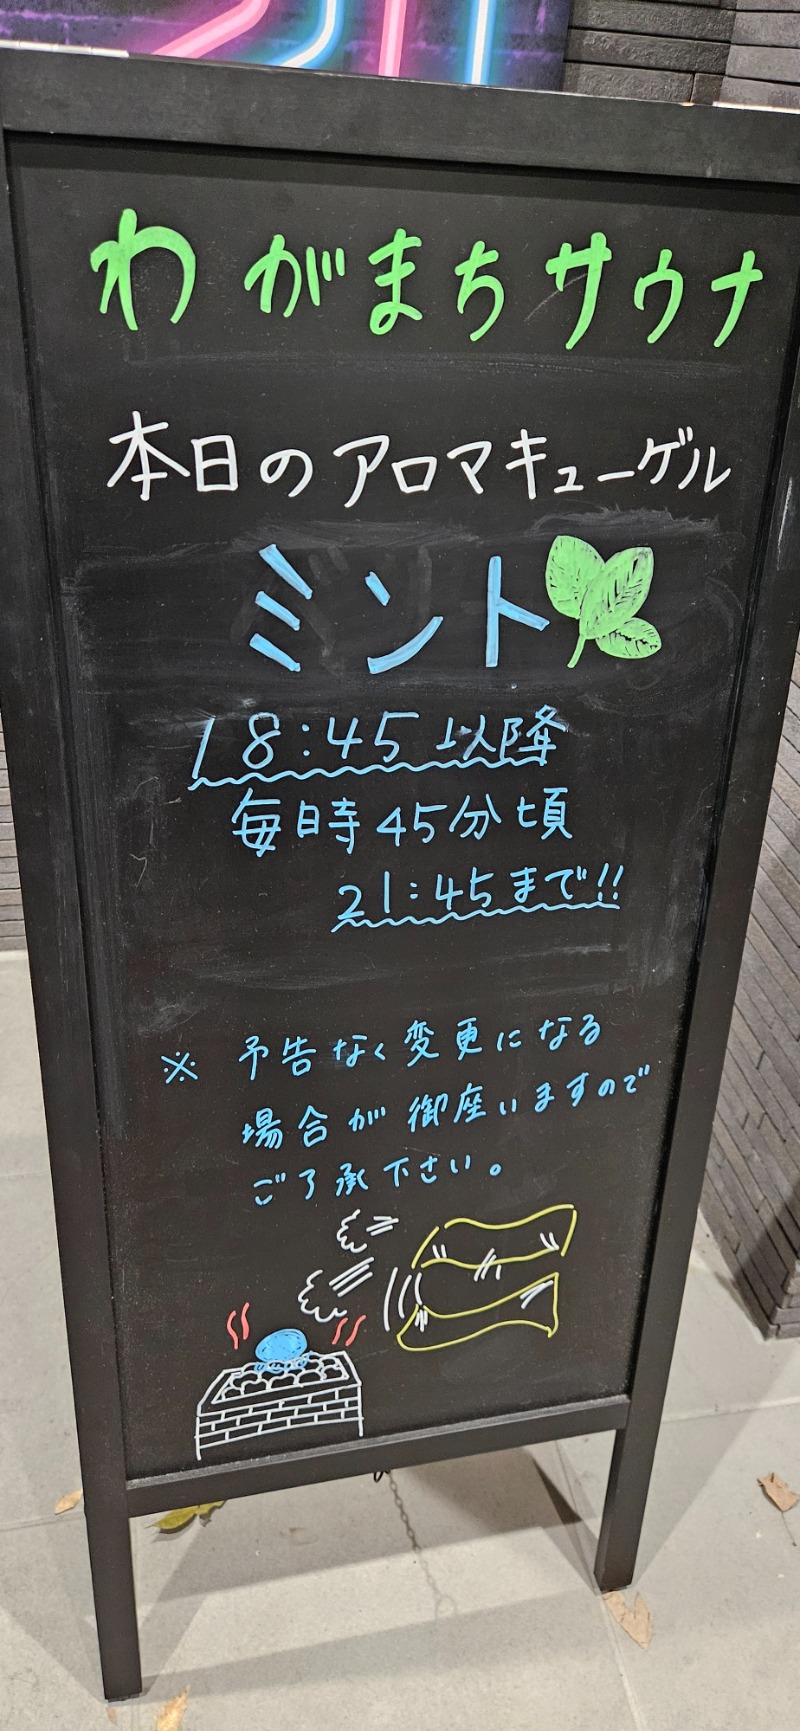 わがまちサウナ
本日のアロマキューゲル
ミント
18:45以降
毎日時45分頃
21:45まで!!
※ 予告なく変更になる
場合が御座いますので
ご了承下さい。